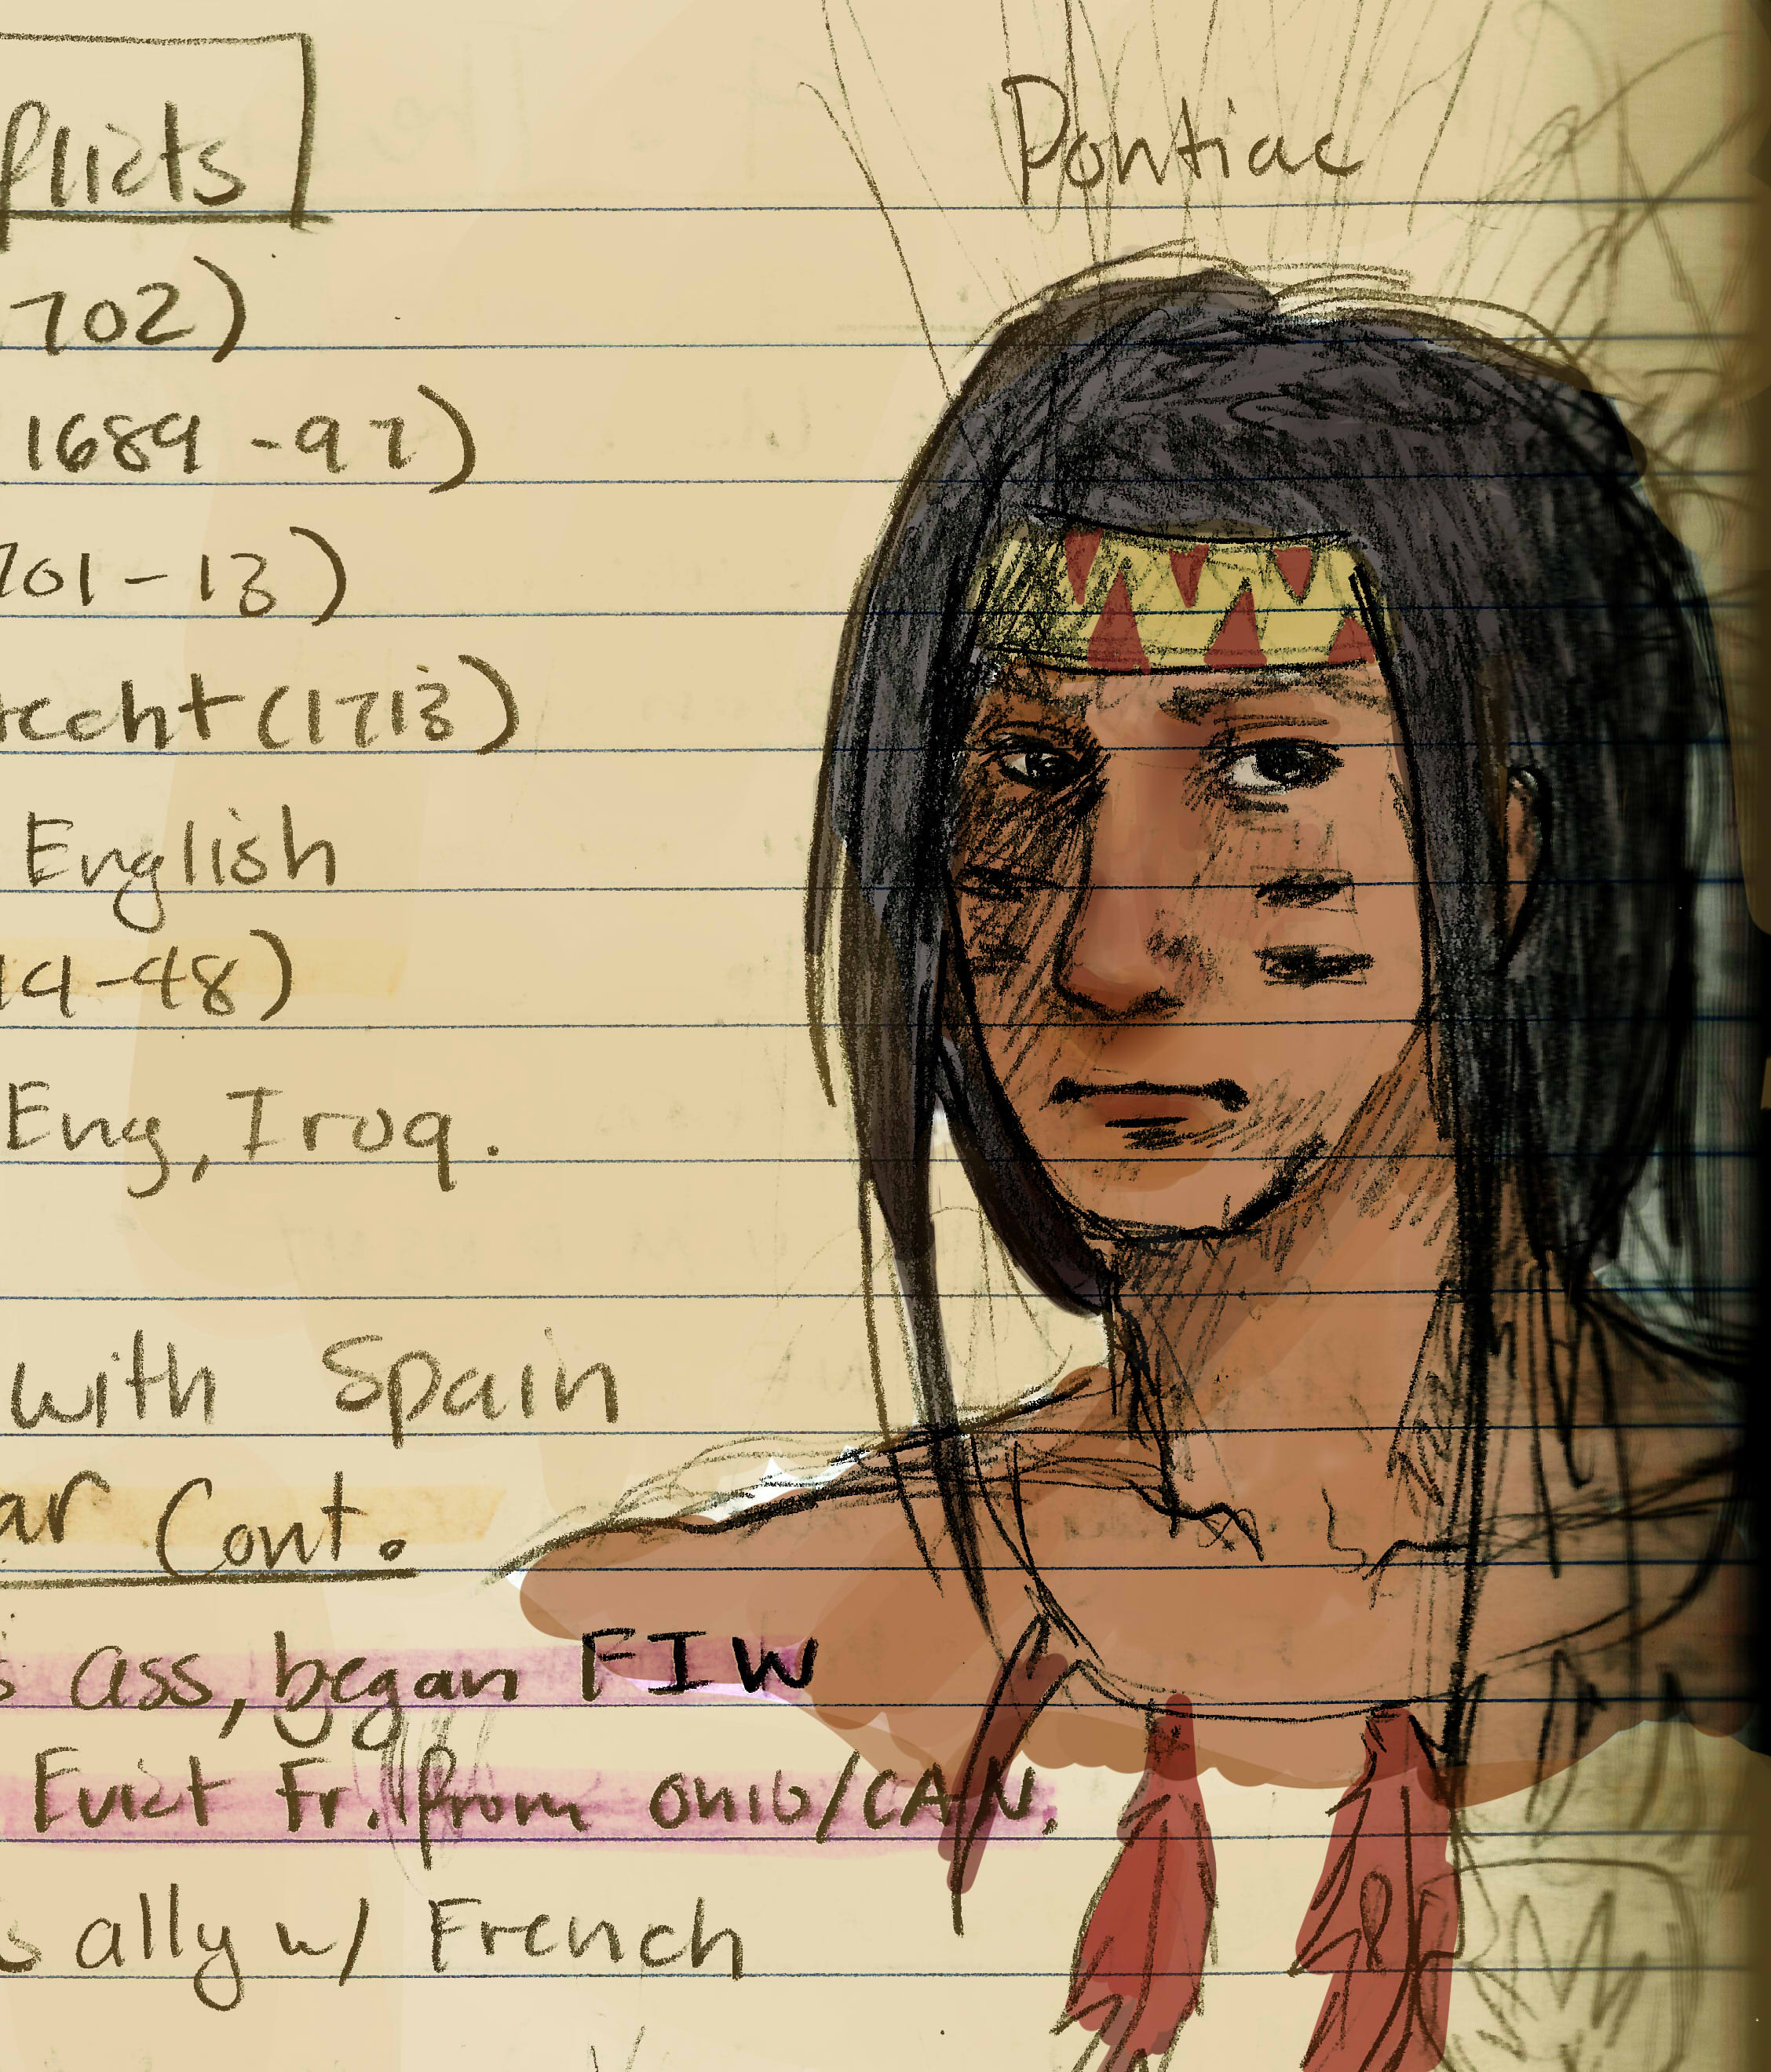 Pontiac
flicts
702)
1689 - 97)
701 - 13)
recht (1713)
English
14 - 48)
Eng, Iroq.
with Spain
ar Cont.
s ass, began FIW
Evict Fr. from Ohio/CAN.
s ally w/ French